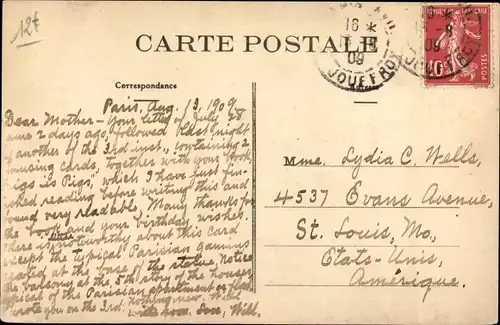 12€
CARTE POSTALE
16 *
09
JOUFFROY
09
JOUFFROY
10c
POSTES
Correspondance
Paris, Aug. 13, 1909.
Dear Mother - Your letter of July 28
came 2 days ago, followed last night
by another of the 3rd inst., containing 2
amusing cards, together with your book,
"Pigs is Pigs", which I have just fin-
ished reading before writing this and
found very readable. Many thanks for
the book and your birthday wishes.
There is little noteworthy about this card
except the typical Parisian gamins
seated at the base of the statue. Notice
the balcony at the 5th story of the houses,
typical of the Parisian apartment or flat.
wrote you on the 3rd. Nothing new. Well
with love. Son, Will.
Mme. Lydia C. Wells,
4537 Evans Avenue,
St. Louis, Mo.,
Etats-Unis,
Amérique.